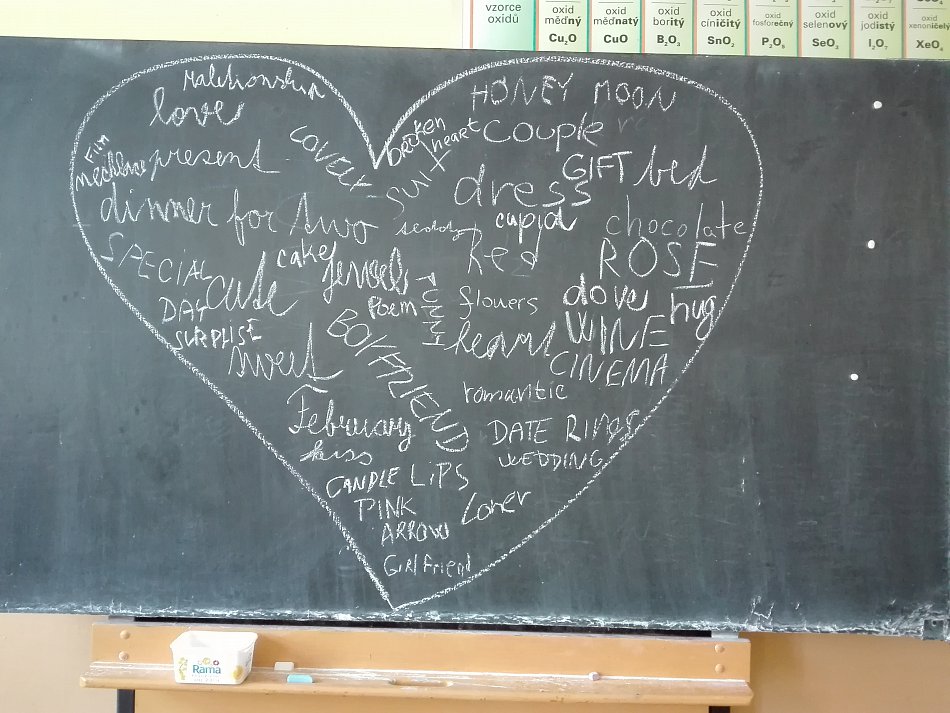 vzorce oxidů
oxid měďný Cu₂O
oxid měďnatý CuO
oxid boritý B₂O₃
oxid cíničitý SnO₂
oxid fosforečný P₂O₅
oxid selenový SeO₃
oxid jodistý I₂O₇
oxid xenoničelý XeO₄
love
HONEY MOON
broken heart
couple
FILM
necklace
present
LOVELY
SUIT
dress
GIFT
bed
dinner for two
teddy
cupid
chocolate
SPECIAL DAY
cute
cake
jewels
red
ROSE
SURPRISE
Poem
FUNNY
flowers
dove
hug
sweet
BOYFRIEND
heart
WINE
CINEMA
romantic
February
DATE
RINGS
kiss
WEDDING
CANDLE
LiPS
PINK
Lover
ARROW
Girlfriend
Rama